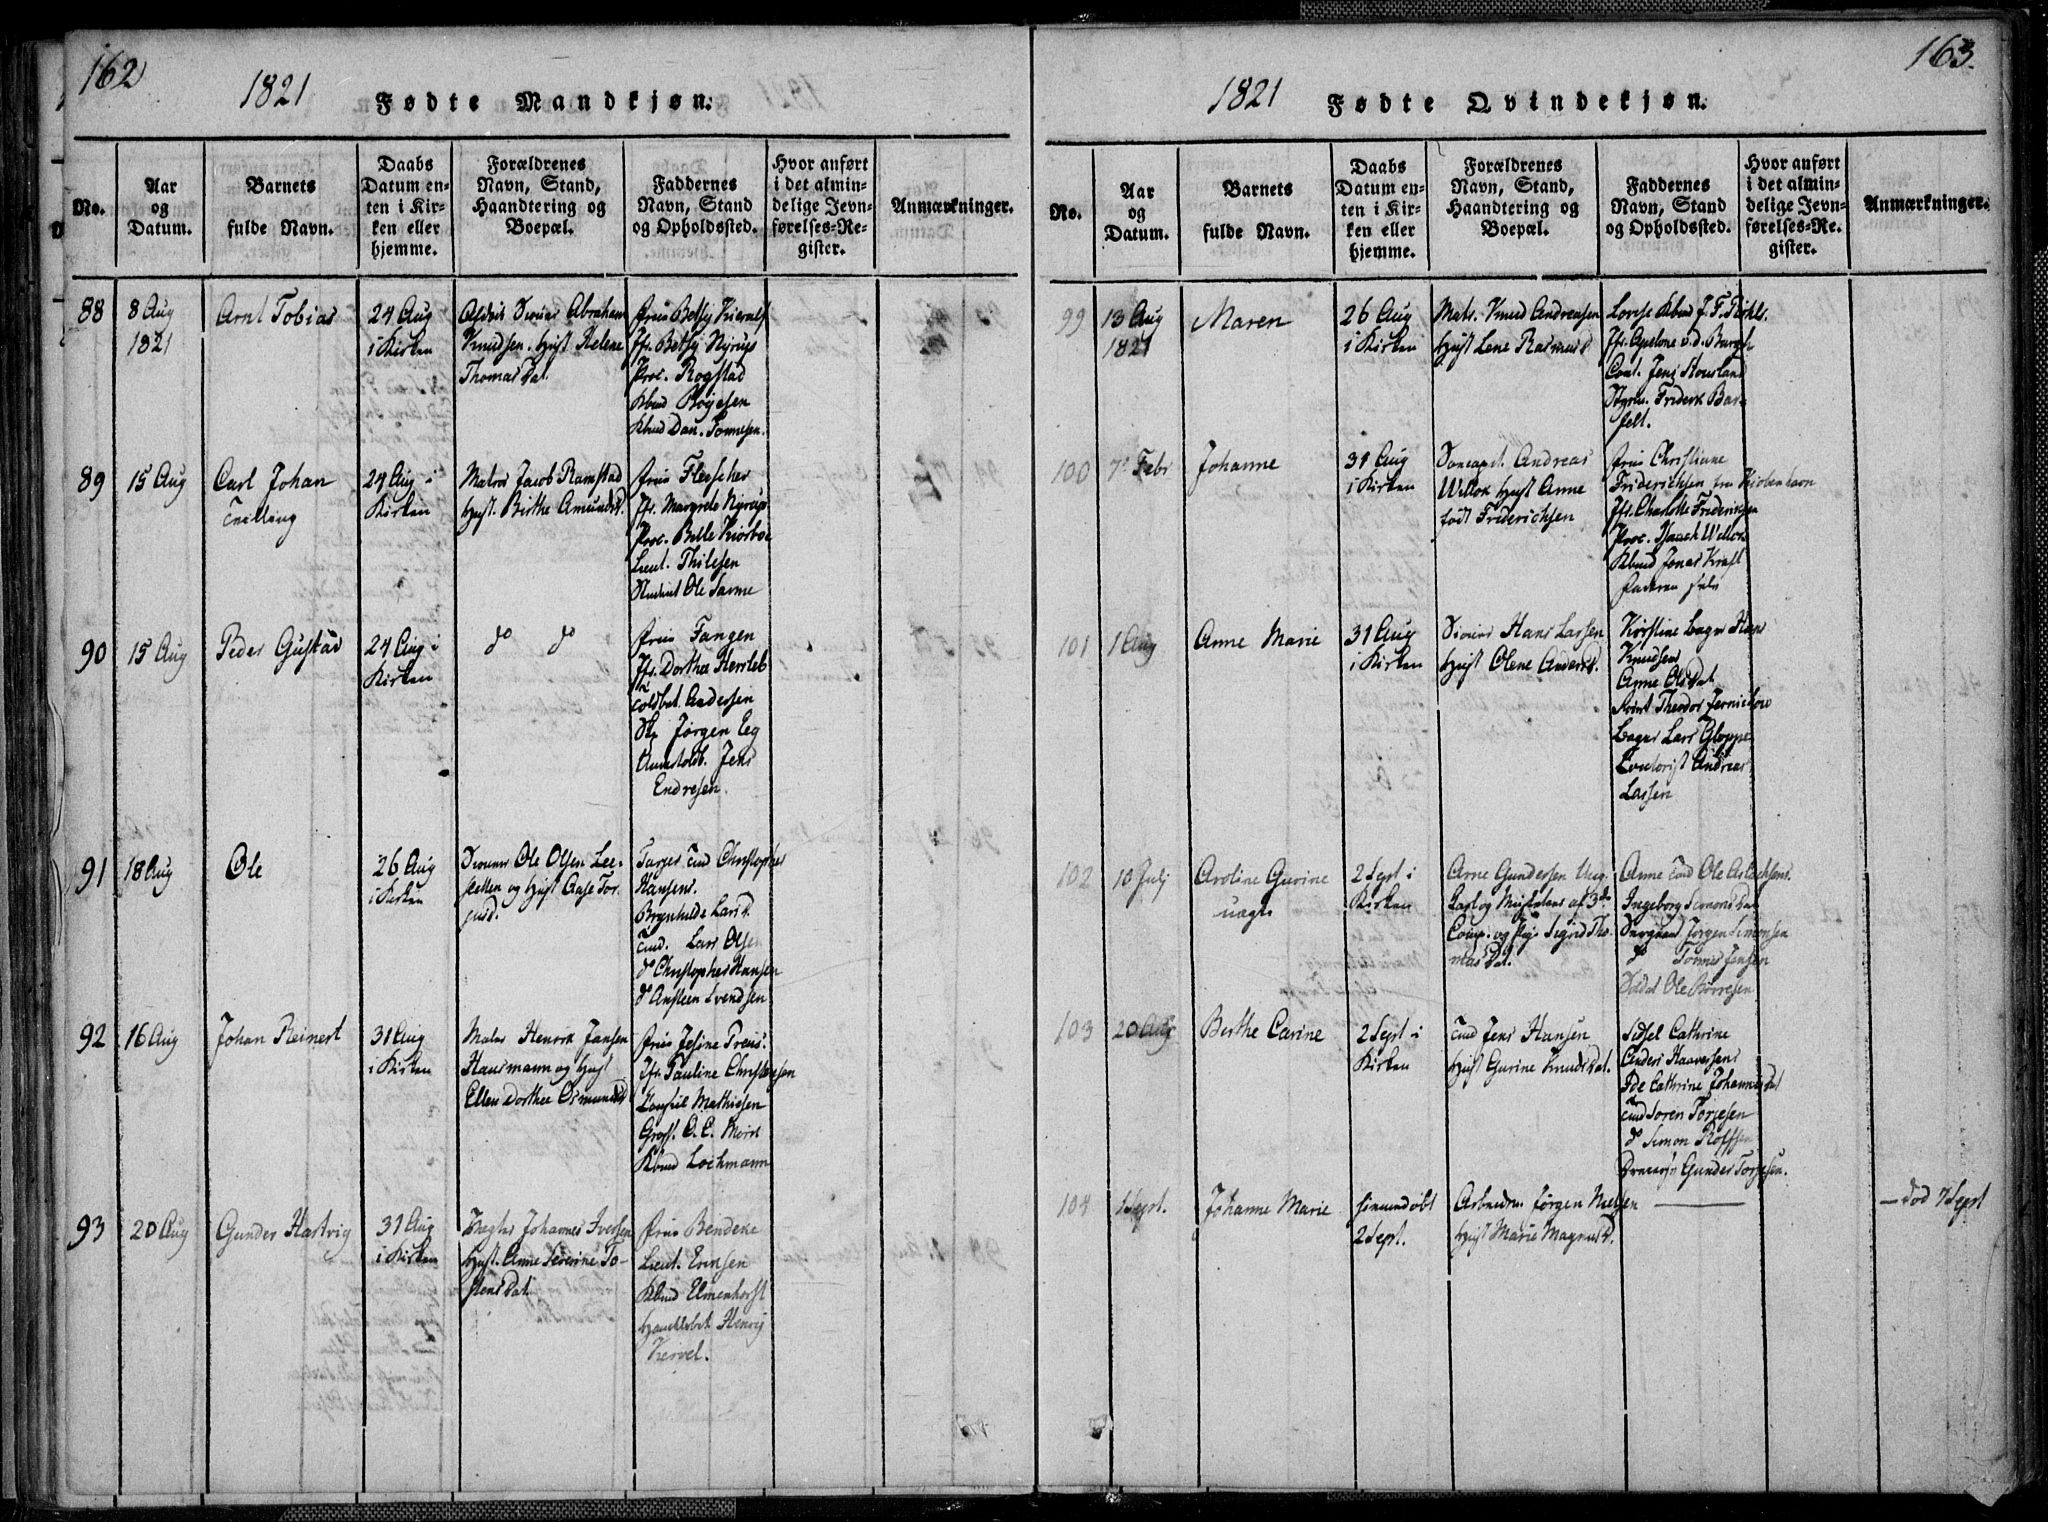 162
1821
Fødte Mandkjøn.
No.
Aar
og
Datum.
Barnets
fulde Navn.
Daabs
Datum en-
ten i Kir-
ken eller
hjemme.
Forældrenes
Navn, Stand,
Haandtering og
Boepæl.
Faddernes
Navn, Stand
og Opholdssted.
Hvor anført
i det almin-
delige Jevn-
førelses-Re-
gister.
Anmærkninger.
88
8 Aug
1821
Arnt Tobias
24 Aug
i Kirken
Abraham
Knudsen. Hust Helene
Thomas Dat
Betsy
Jfr. Betsy Nyrup
Proc. Rogstad
Kbmd Roÿesen
Kbmd Dan. Tønnesen.
89
15 Aug
Carl Johan
Tvilling
24 Aug i
Kirken
Matros Jacob Ramstad
Hust. Birthe Amundsd.
Fleischer
Jfr. Margrete Nyrup
Proc. Bille Kiørboe
Lieut. Thilesen
Student Ole
90
15 Aug
Peder Gustav
24 Aug i
Kirken
do do
Fangen
Jfr. Dorthea Hersleb
Toldbet. Andersen
Jørgen Eg
Jens
Endresen.
91
18 Aug
Ole
26 Aug
i Kirken
Ole Olsen Lee-
og Hust Aase Tor-
Christopher
Hansens.
Brynhilde Larsd.
Tmd. Lars Olsen
do Christopher Hansen
do Ansteen Svendsen
92
16 Aug
Johan Reinert
31 Aug
i Kirken
Matros Henrik Jansen
Hausmann og Hust
Ellen Dorthea Osmundsd
Jesine Preus.
Jfr. Pauline Christensen
Consul Mathiesen
Gross. O. C. Mørk
Kbmd Lochmann
93
20 Aug
Gunder Hartvig
31 Aug
i Kirken
Johannes Iversen
Hust. Anne Severine To-
stens Dat
Bendeke
Lieut.
Kbmd Elmenhorst
Henrij
163.
1821
Fødte Qvindekjøn.
No.
Aar
og
Datum.
Barnets
fulde Navn.
Daabs
Datum en-
ten i Kir-
ken eller
hjemme.
Forældrenes
Navn, Stand,
Haandtering og
Boepæl.
Faddernes
Navn, Stand
og Opholdssted.
Hvor anført
i det almin-
delige Jevn-
førelses-Re-
gister.
Anmærkninger.
99
13 Aug
1821
Maren
26 Aug
i Kirken
Matr. Knud Andreasen
Hust Lene Rasmusd
Kbmd J. F.
Jfr.
Cont. Jens
Friderik Bar-
felt.
100
7 Febr
Johanne
31 Aug
i Kirken
Andreas
Willok Hust Anne
født Friderichsen
Christiane
Friderichsen fra Kiøbenhavn
Jfr. Charlotte Friderichsen
Proc. Isaack Willock
Kbmd Jonas Kraft
Faderen selv
101
1 Aug
Anne Marie
31 Aug
i Kirken
Hans Larsen
Hust Olene Andersd.
Kirstine Bager Hans
Knudsens
Anne Ols Dat
Theodor
Bager Lars Gloppe
Andreas
Larsen
102
10 Julj
Aroline Gurine
uægte
2 Sept i
Kirken
Arne Gundersen
af 3die
Comp. og Pige Sigrid Tho-
mas Dat.
Anne Tmd Ole Aslachsens.
Ingeborg Simons Dat
Jørgen Simonsen
do Tønnes Jensen
Soldat Ole Børresen
103
20 Aug
Birthe Carine
2 Sept i
Kirken
Tmd Jens Hansen
Hust Gurine Knuds Dat.
Sidsel Cathrine
Anders Haavorsens
Cathrine Johannes Dat
Tmd Søren Torjesen
do Simon Rolfsen
Gunder Torjesen.
104
1 Sept.
Johanne Marie
hiemmedøbt
2 Sept.
Arbeidsm. Jørgen Nielsen
Hust Marie Magnusd.
— død 7 Sept